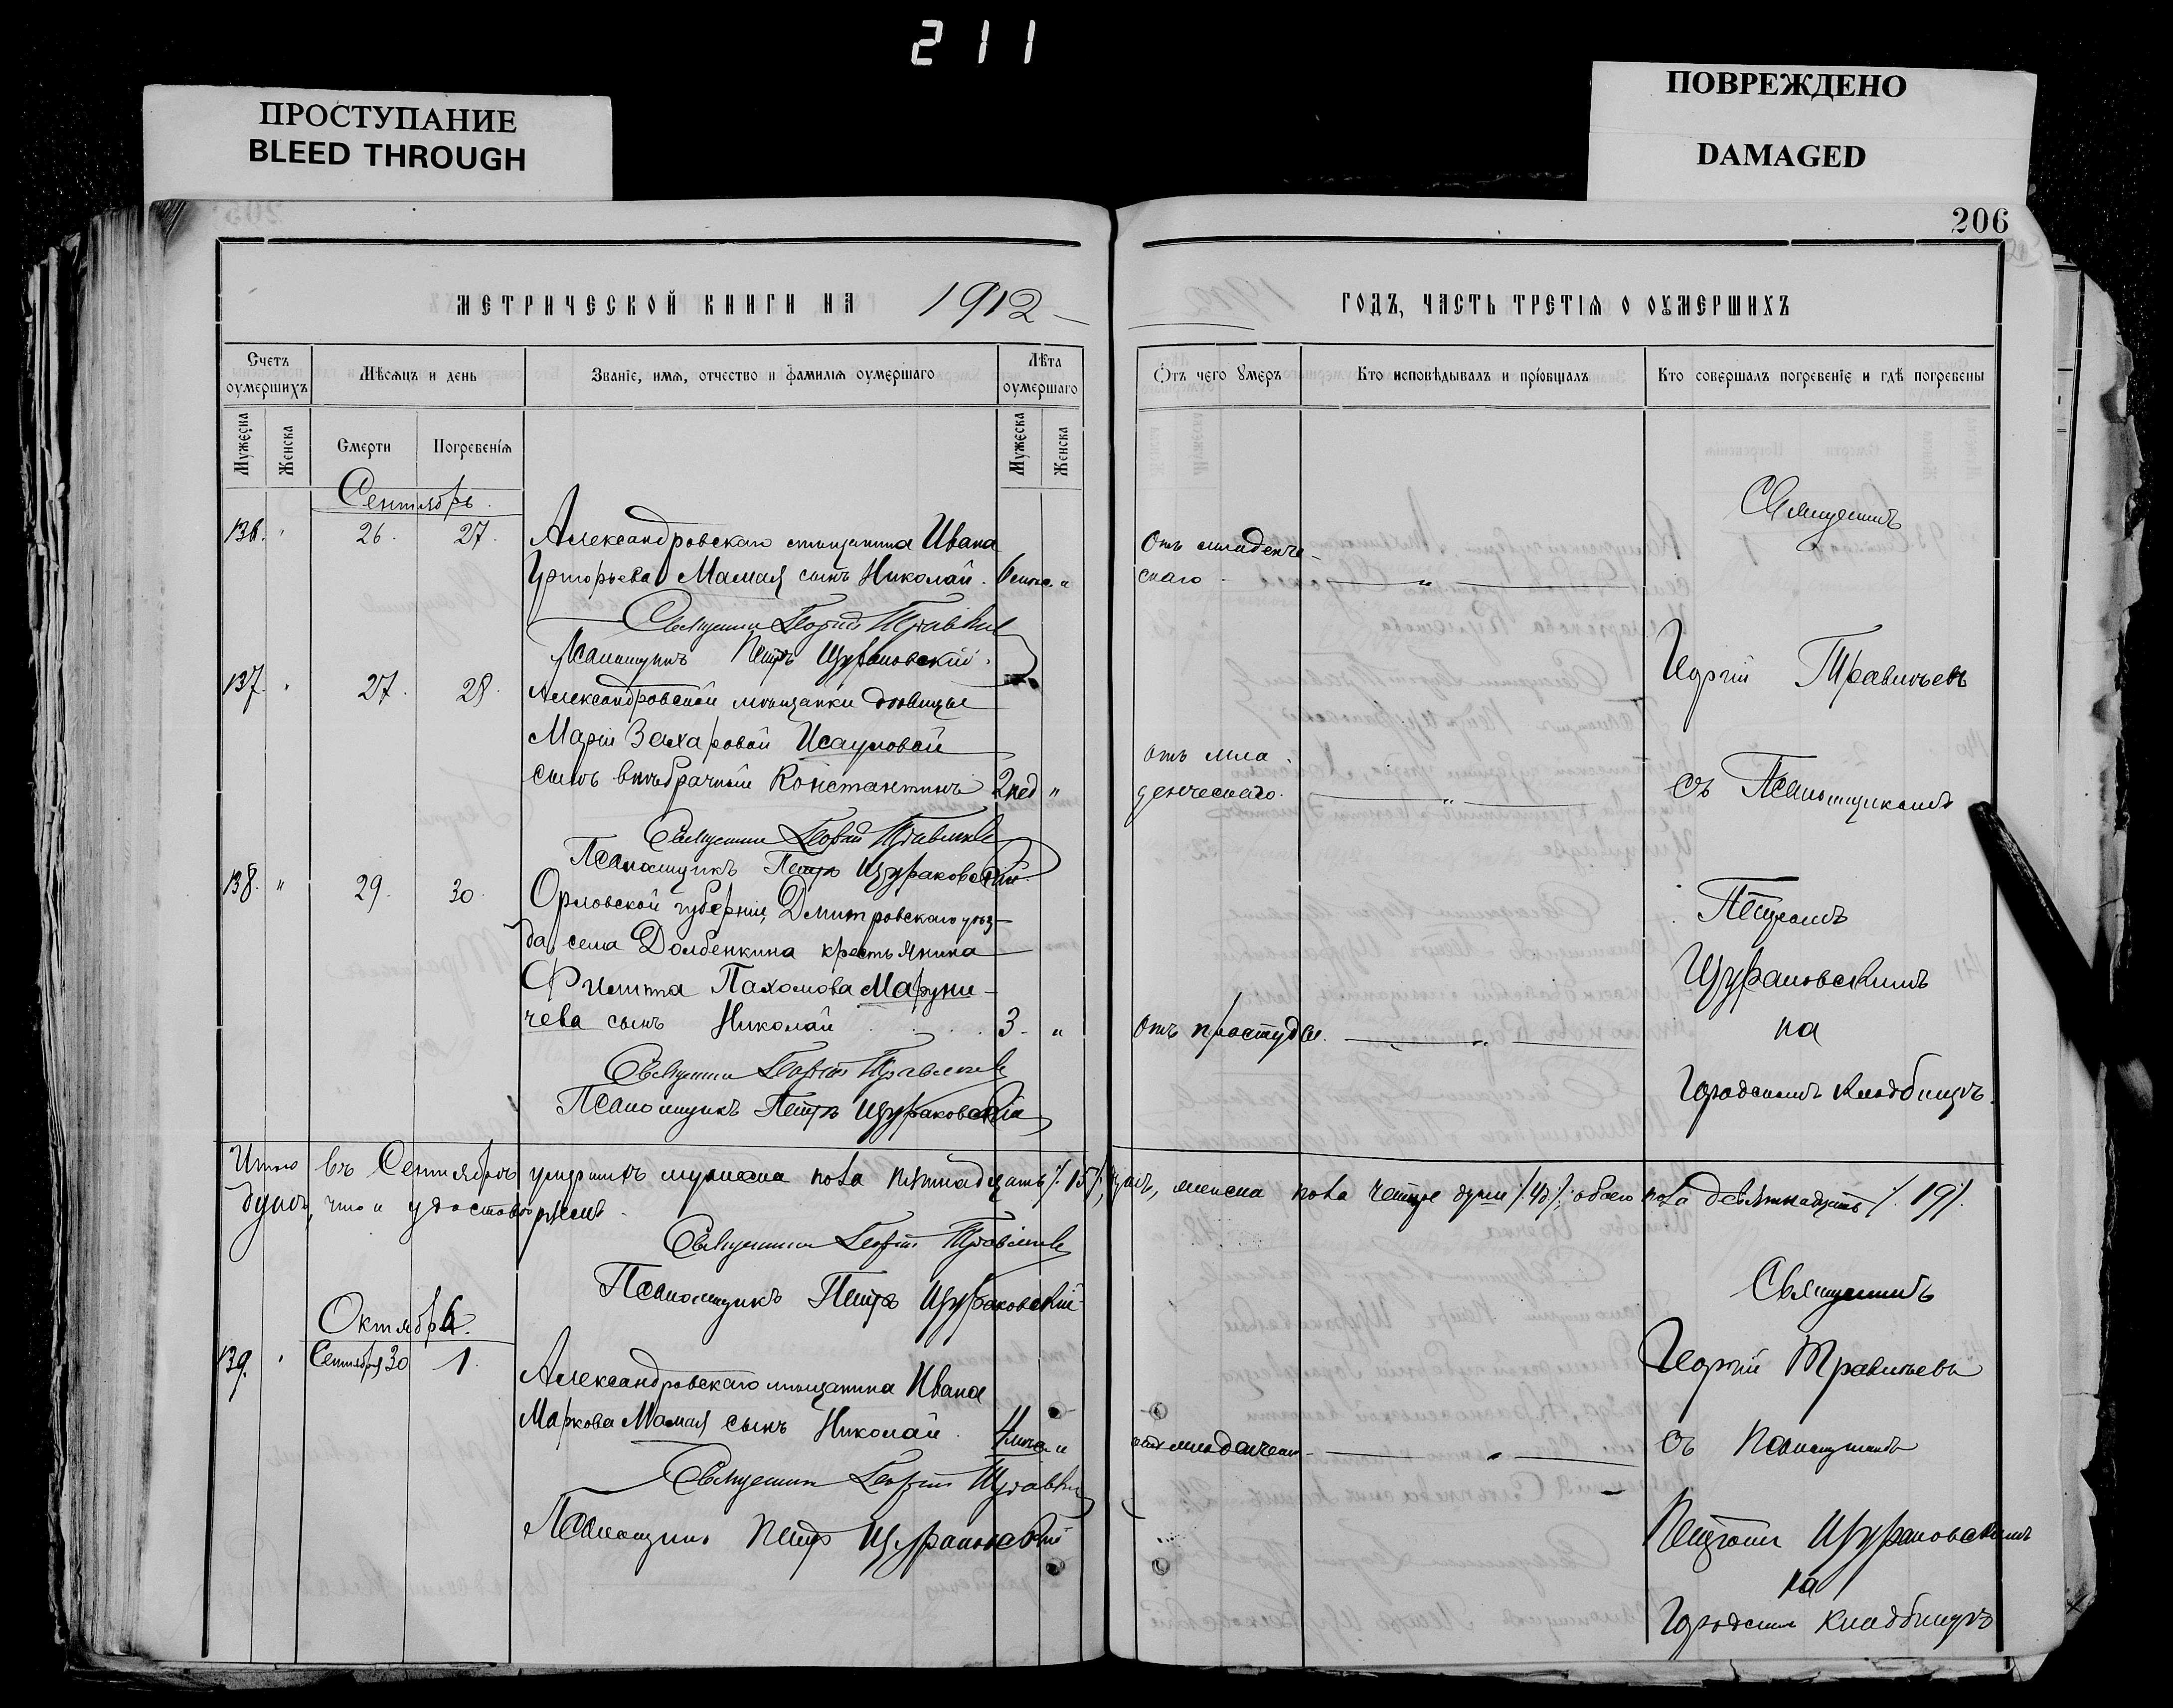 211
ПРОСТУПАНИЕ
BLEED THROUGH
ПОВРЕЖДЕНО
DAMAGED
206
МЕТРИЧЕСКОЙ КНИГИ НА 1912
ГОДЪ, ЧАСТЬ ТРЕТІЯ О ОУМЕРШИХЪ
Счетъ оумершихъ
Мѣсяцъ и день
Званіе, имя, отчество и фамилія оумершаго
Лѣта оумершаго
Отъ чего умеръ
Кто исповѣдывалъ и пріобщалъ
Кто совершалъ погребеніе и гдѣ погребены
Мужеска
Женска
Смерти
Погребенія
Мужеска
Женска
Сентябрь.
136. " 26. 27.
Александровскаго мѣщанина Ивана
Григорьева Мамая сынъ Николай. "
Отъ младенче-
скаго
"
Священникъ Георгій
Псаломщикъ Петръ Щураковскій.
137. " 27. 28.
Александровской мѣщанки дѣвицы
Маріи Захаровой Исауловой
сынъ внѣбрачный Константинъ 2 нед "
отъ мла
денческаго.
"
Священникъ Георгій
Псаломщикъ Петръ Щураковскій.
138. " 29. 30.
Орловской губерніи, Дмитровскаго уѣз-
да, села Долбенкина крестьянина
Филиппа Пахомова Маруни-
чева сынъ Николай 3. "
отъ простуды.
"
Священникъ Георгій
Псаломщикъ Петръ Щураковскій
Священникъ
Георгій Травлѣевъ
съ Псаломщикомъ
Петромъ
Щураковскимъ
на
Городскомъ кладбищѣ.
Итого въ Сентябрѣ умершихъ мужска пола пятнадцать /.15/. душъ, женска пола четыре души /.4/.; обоего пола девятнадцать /.19/.
душъ, что и удостовѣряемъ.
Священникъ Георгій
Псаломщикъ Петръ Щураковскій
Октябрь.
139. " Сентября 30 1.
Александровскаго мѣщанина Ивана
Маркова Мамая сынъ Николай. "
"
Священникъ Георгій
Псаломщикъ Петръ Щураковскій
Священникъ
Георгій Травлѣевъ
съ Псаломщикомъ
Петромъ Щураковскимъ
на
Городскомъ кладбищѣ